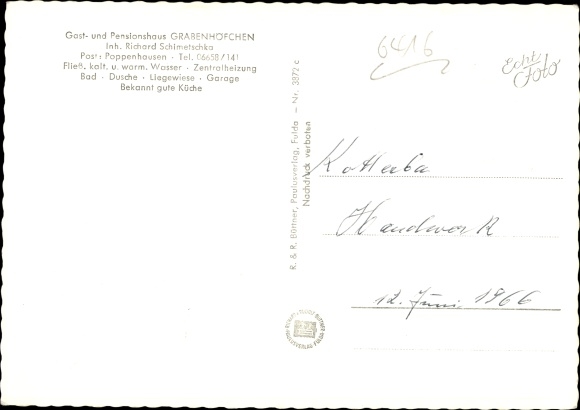 Gast- und Pensionshaus GRABENHÖFCHEN
Inh. Richard Schimetschka
Post: Poppenhausen · Tel. 06658/141
Fließ. kalt. u. warm. Wasser · Zentralheizung
Bad · Dusche · Liegewiese · Garage
Bekannt gute Küche
R. & R. Büttner, Paulusverlag, Fulda – Nr. 3872 c
Nachdruck verboten
6416
Echt Foto
Handwerk
12. Juni 1966